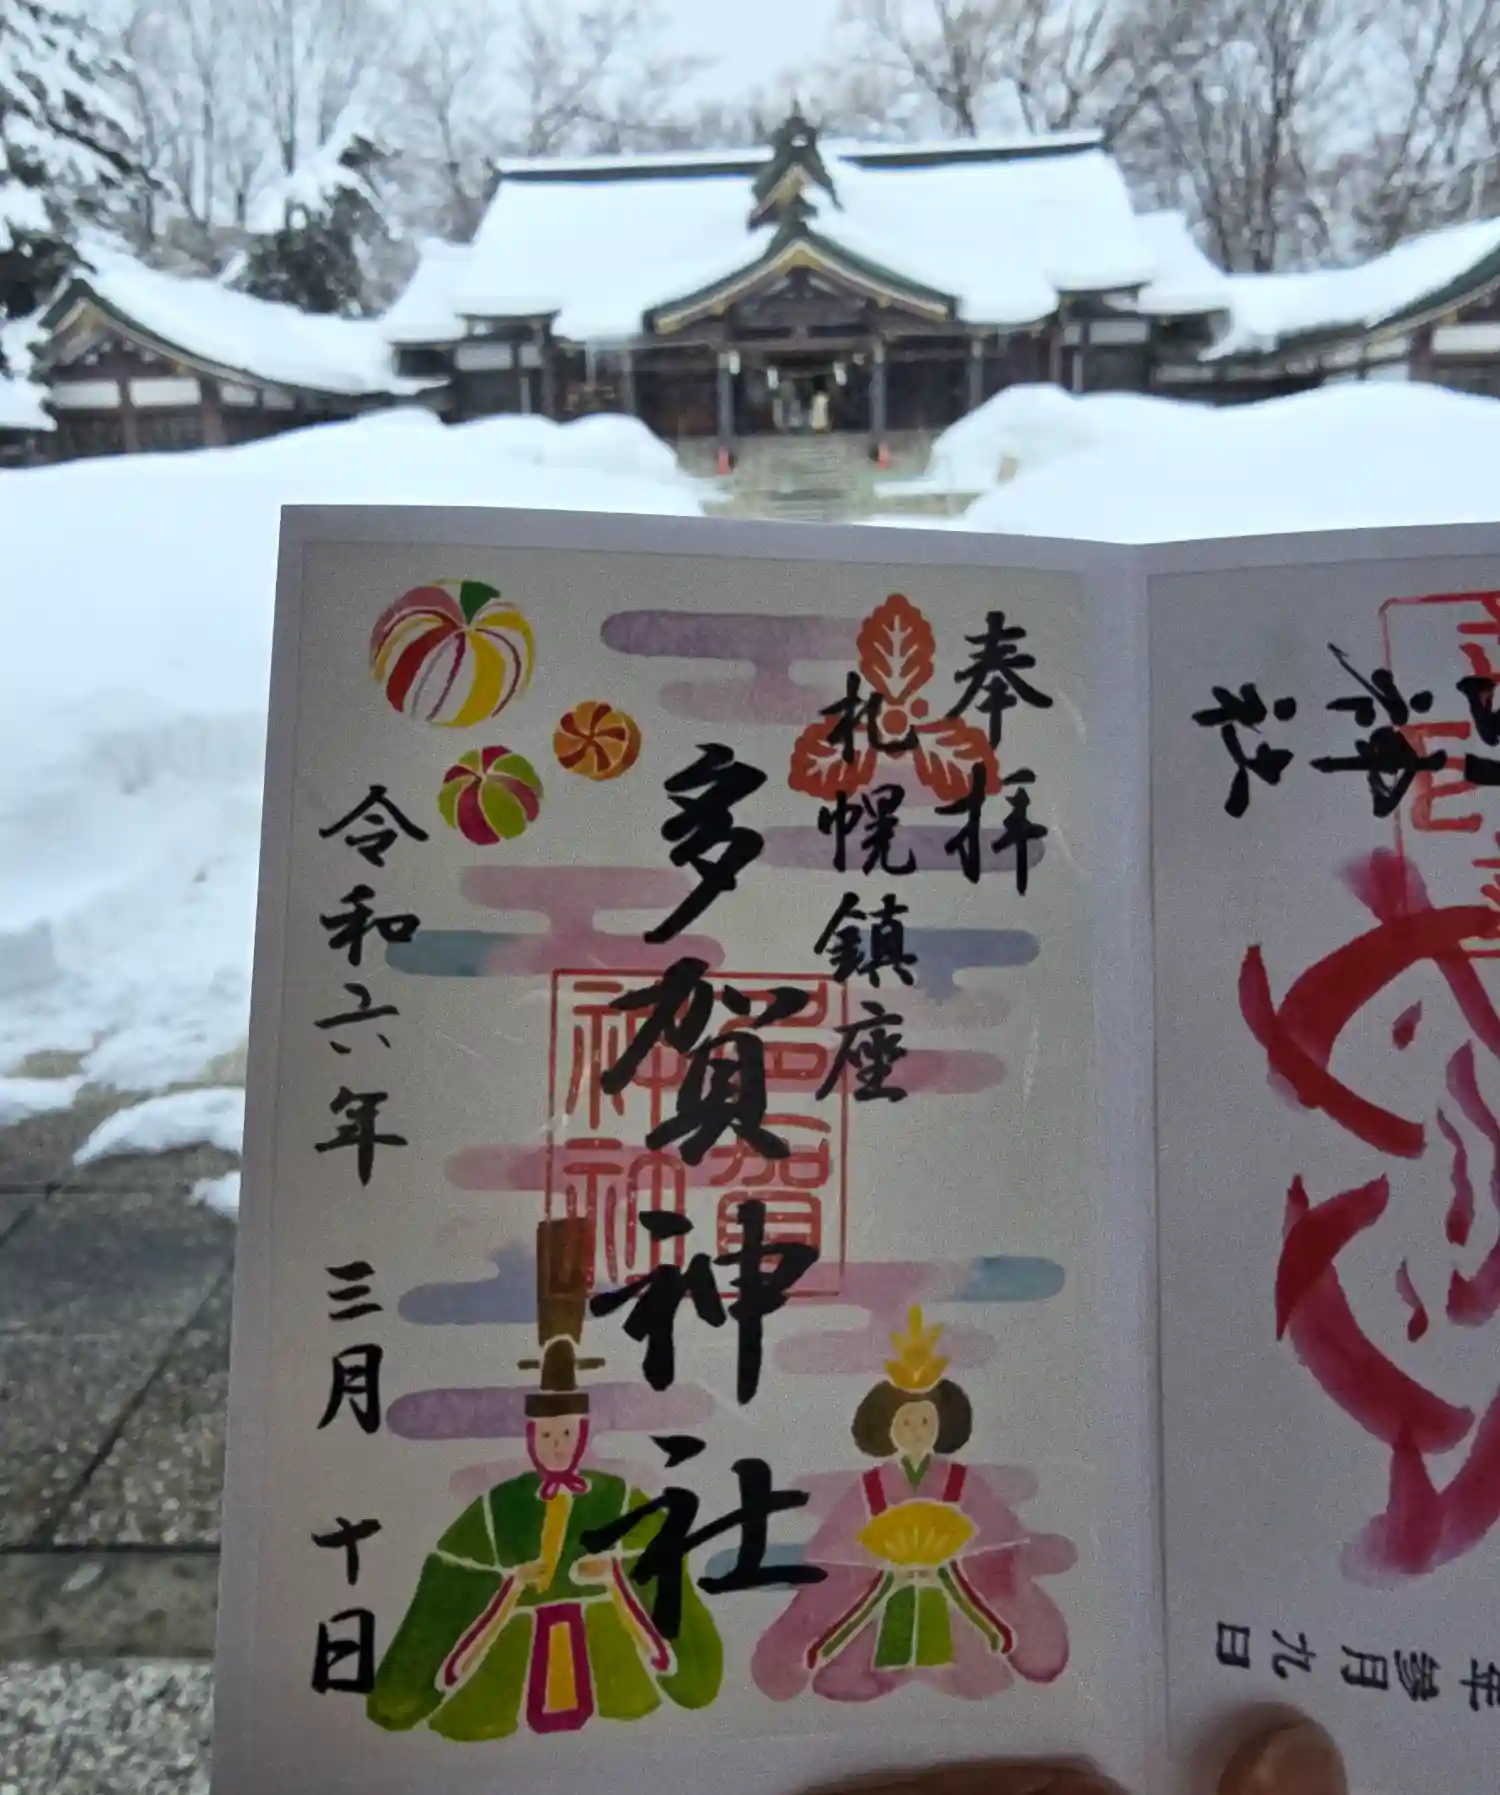 奉拝
札幌鎮座
多賀神社
令和六年 三月 十日
神社
年参月九日